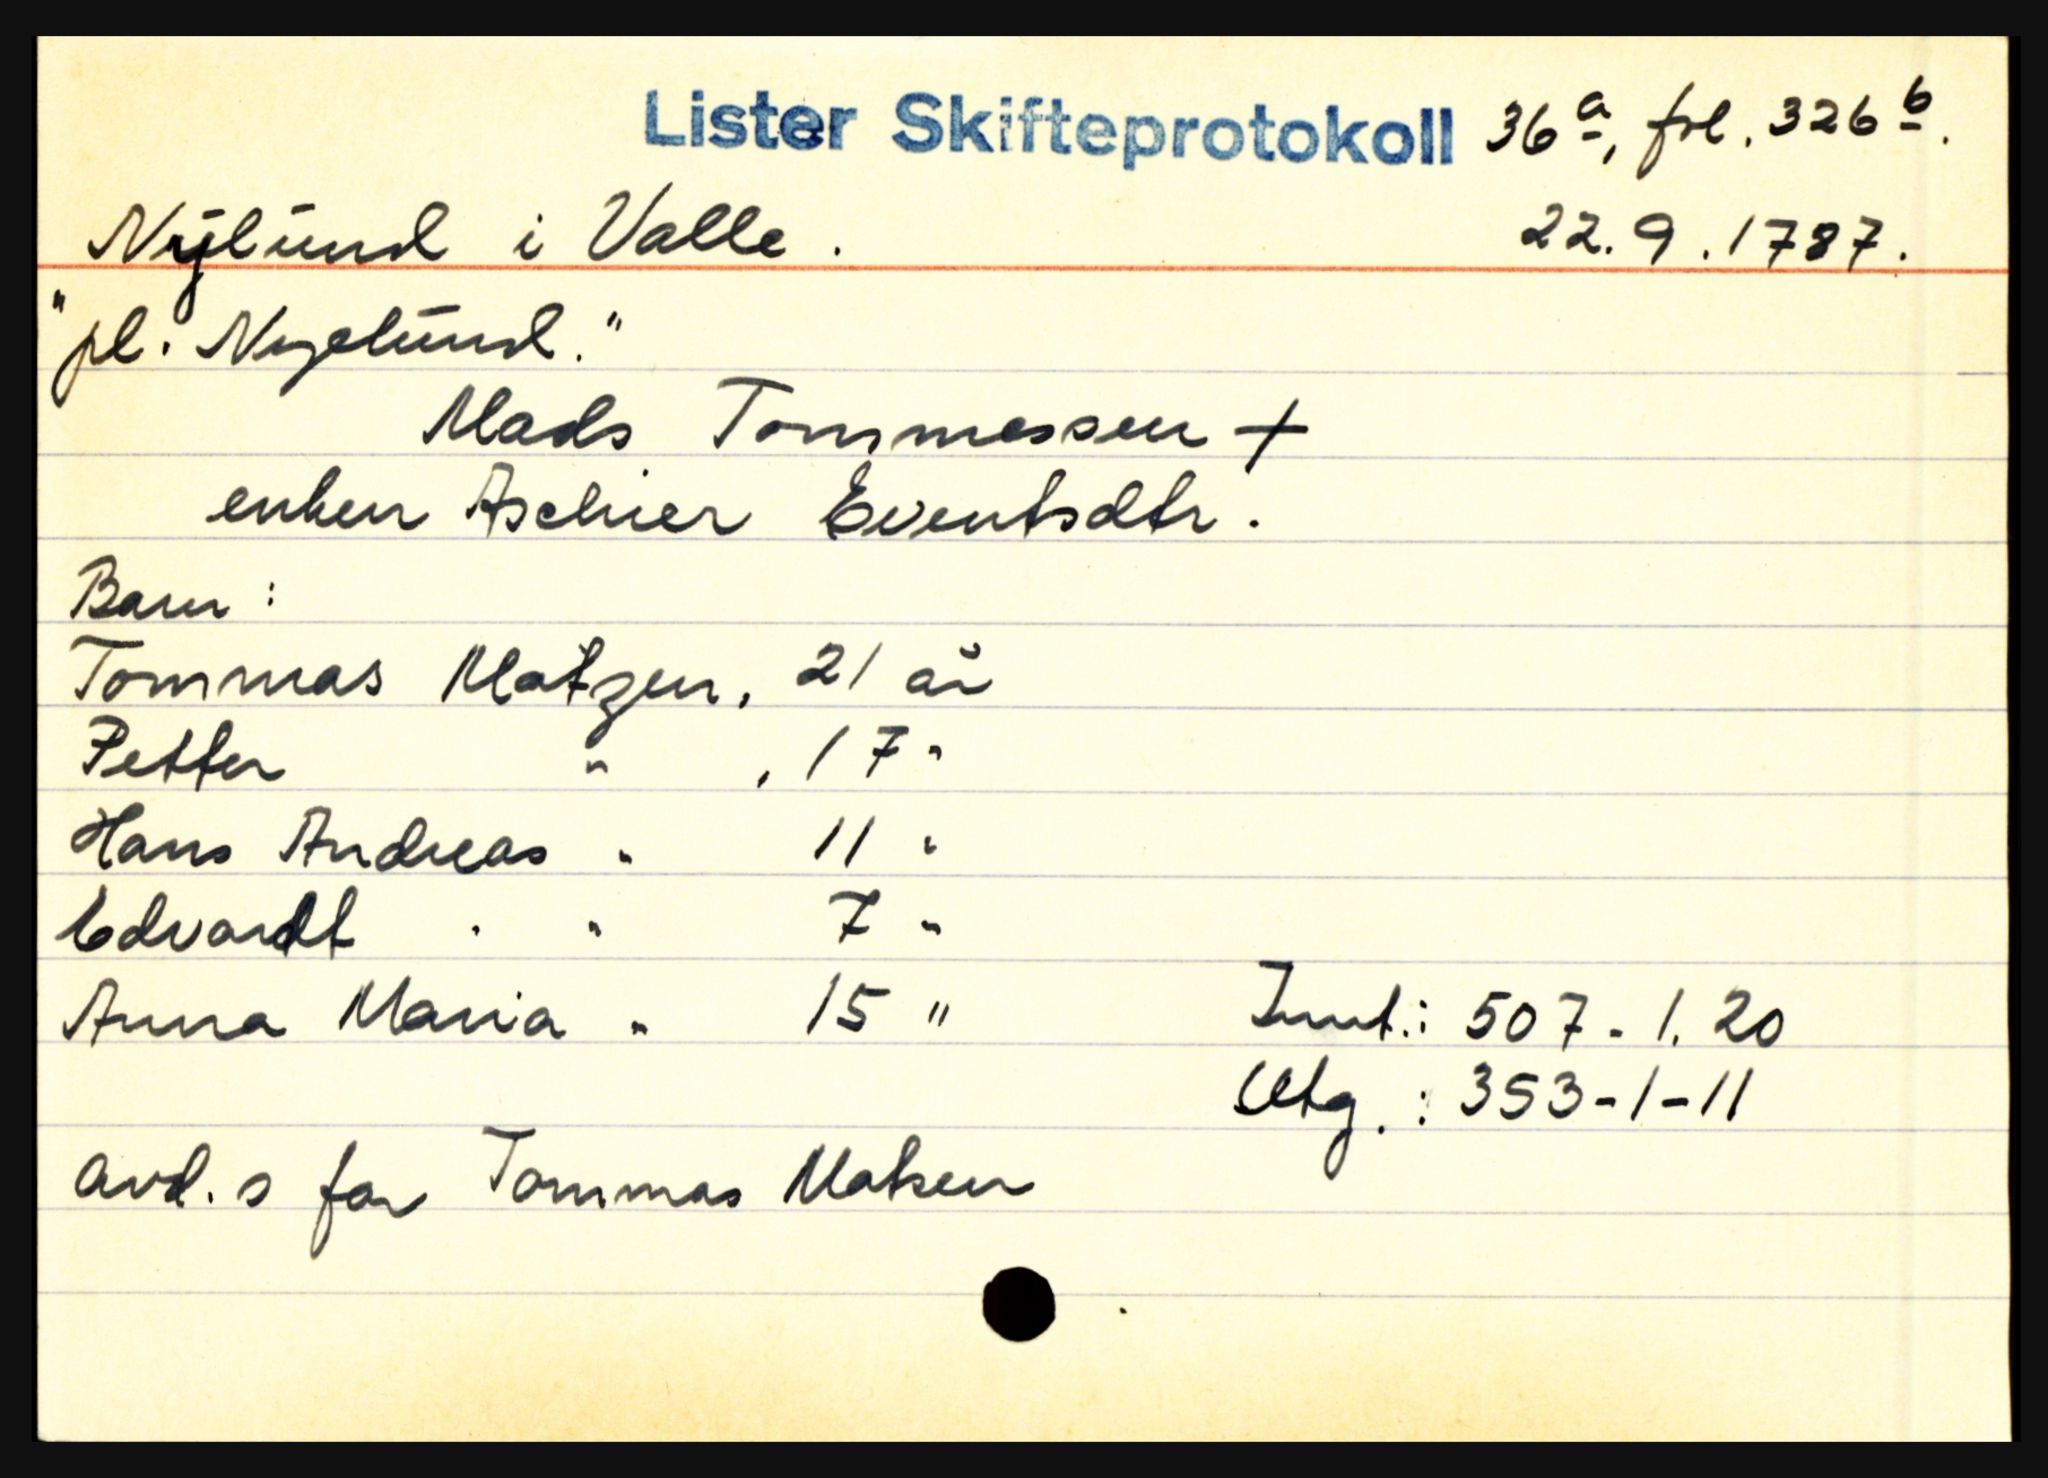 Lister Skifteprotokoll 36a, fol. 326b.
Nylund i Valle. 22.9.1787.
"pl. Nygelund."
Mads Tommessen +
enken Aschier Eventsdtr.
Barn:
Tommas Matzen, 21 år
Petter " , 17 "
Hans Andreas " 11 "
Edvardt " " 7 "
Anna Maria " 15 "
Innt.: 507-1.20
Utg.: 353-1-11
avd. s far Tommas Matsen